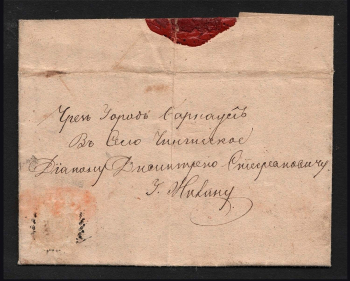 Чрезъ Городъ Барнаулъ
Въ Село Чингиское
Діакону Димитрію Стефановичу
Г.